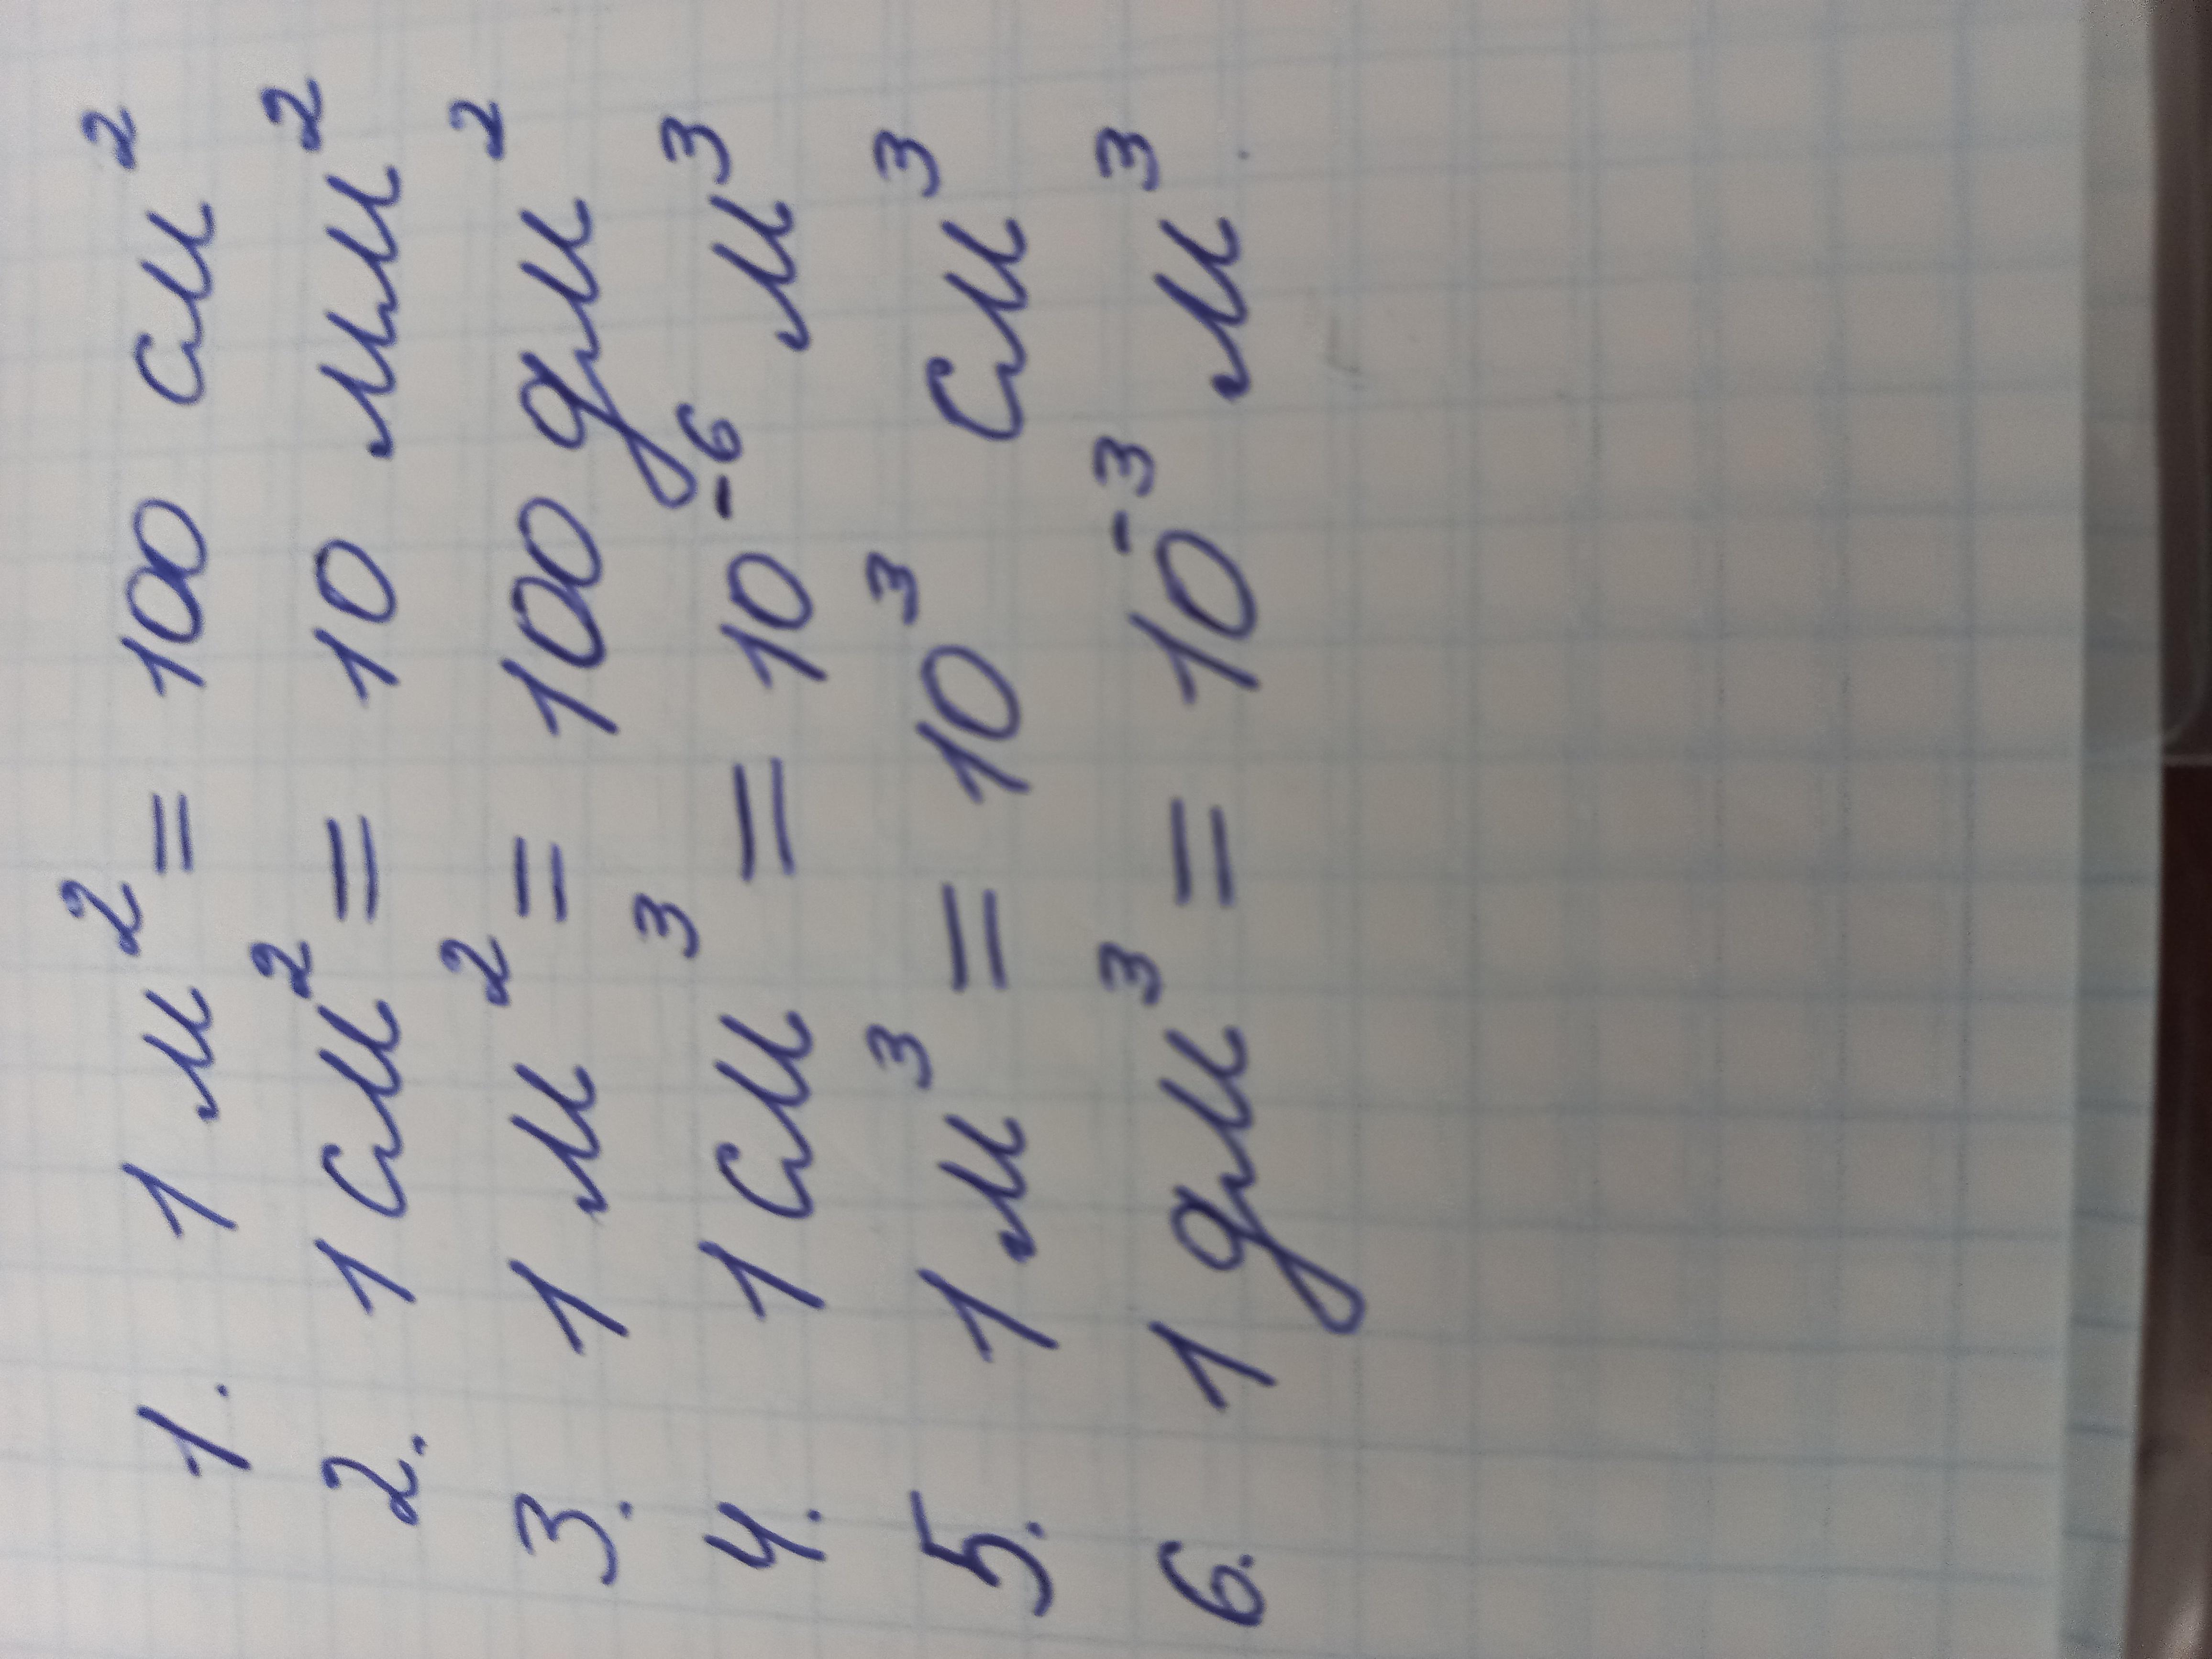 1. 1 м² = 100 см²
2. 1 см² = 10 мм²
3. 1 м² = 100 дм²
4. 1 см³ = 10⁻⁶ м³
5. 1 м³ = 10³ см³
6. 1 дм³ = 10⁻³ м³